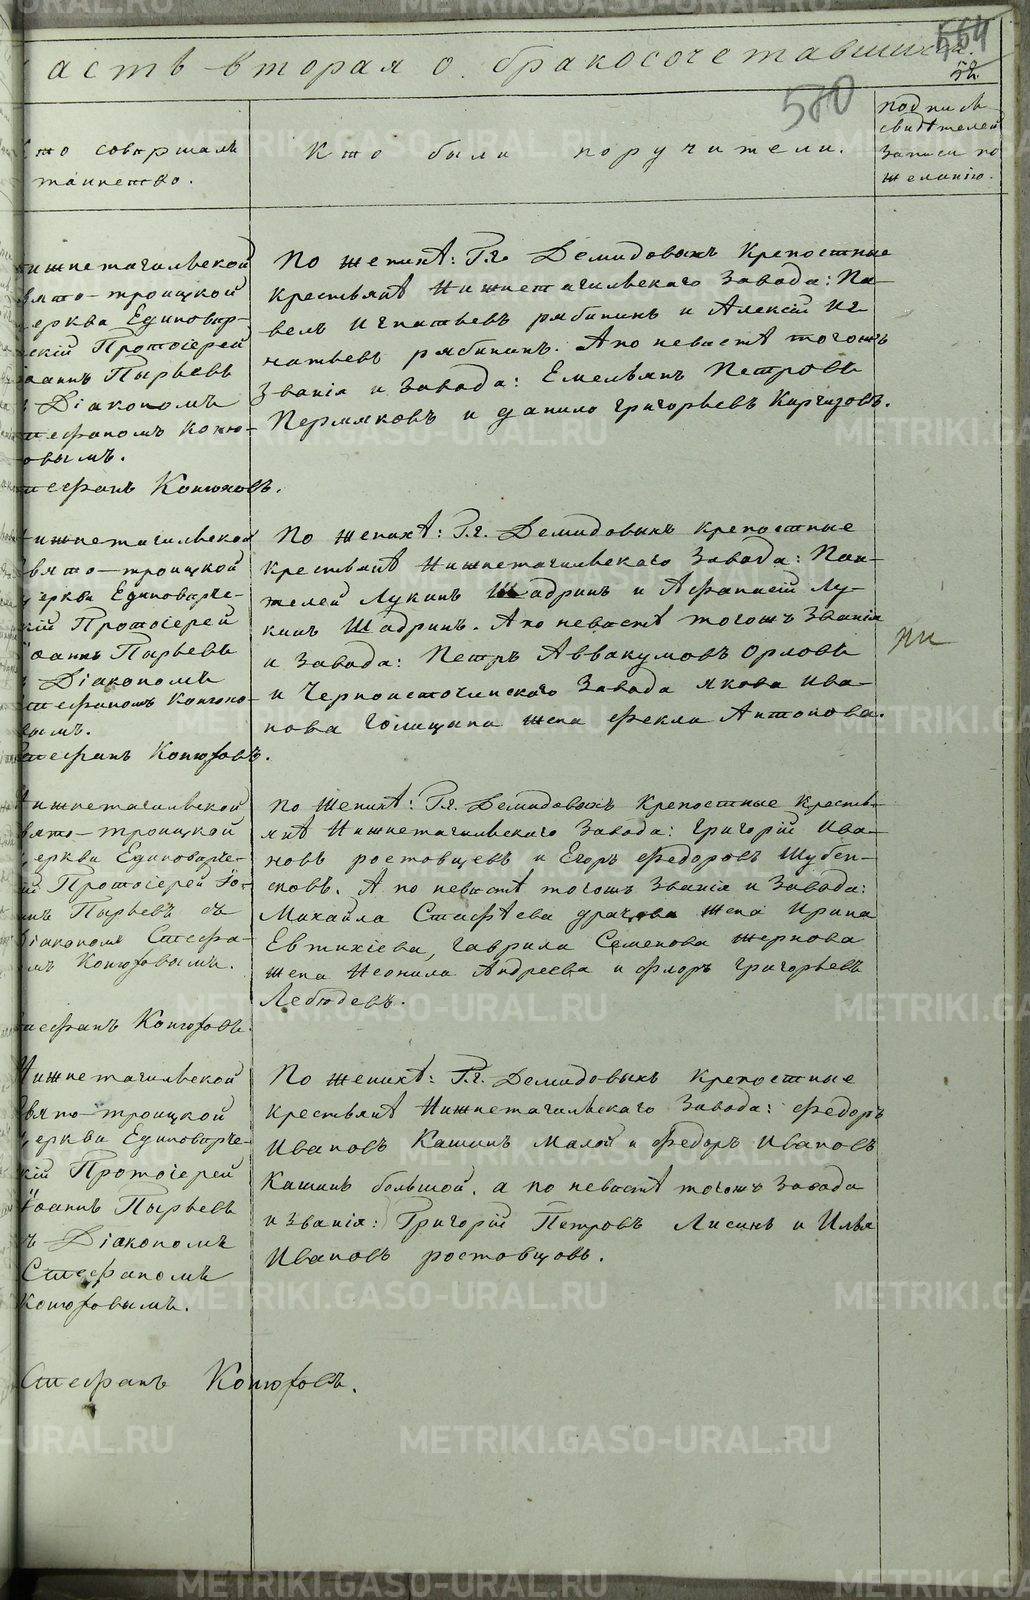 асть вторая о бракосочетавшихся.
564
52
580
то совершалъ
таинство.
Кто были поручители.
подпись
свидѣтелей
записи по
желанію.
ижнетагильской
вято-троицкой
еркви Единовѣр-
скій Протоіерей
оаннъ Пырьевъ
Діакономъ
тефаномъ Коню-
овымъ.
тефанъ Конюховъ.
По женихѣ: Г.г. Демидовыхъ крепостные
крестьянѣ Нижнетагильскаго завода: Па-
велъ Игнатьевъ рябининъ и Алексій Иг
натьевъ рябининъ. А по невѣстѣ тогожъ
Званія и Завода: Емельянъ Петровъ
Пермяковъ и данило григорьевъ Каргизовъ.
ижнетагильской
вято-троицкой
еркви Единоверче-
кій Протоіерей
оаннъ Пырьевъ
Діакономъ
тефаномъ Конюхо-
вымъ.
тефанъ Конюховъ.
По женихѣ: Г.г. Демидовыхъ крепостные
крестьянѣ Нижнетагильскаго Завода: Пан-
телей Лукинъ Шадринъ и Афанасій Лу-
кинъ Шадринъ. А по невѣстѣ тогожъ Званія
и Завода: Петръ Аввакумовъ орловъ
и Черноисточинскаго Завода якова ива-
нова Голицына жена фекла Антонова.
ижнетагильской
вято-троицкой
еркви Единоверче-
ій Протоіерей Іо-
ннъ Пырьевъ съ
іакономъ Стефа-
омъ Конюховымъ.
тефанъ Конюховъ.
По женихѣ: Г.г. Демидовыхъ крепостные кресть-
янѣ Нижнетагильскаго Завода: григорій Ива-
новъ ростовщевъ и Егоръ Федоровъ Шубен-
ковъ. А по невѣстѣ тогожъ Званія и Завода:
Михайла Стафѣева драчова жена Ирина
Евтихіева, гаврила Семенова жернова
жена Неонила Андреева и флоръ григорьевъ
Лебедевъ.
Нижнетагильской
вято-троицкой
еркви Единоверче-
кій Протоіерей
Іоаннъ Пырьевъ
ъ Діакономъ
Стефаномъ
Конюховымъ.
Стефанъ Конюховъ.
По женихѣ: Г.г. Демидовыхъ крепостные
крестьянѣ Нижнетагильскаго Завода: федоръ
Ивановъ Кашинъ малой и федоръ Ивановъ
Кашинъ большой. а по невѣстѣ тогожъ Завода
и Званія: Григорій Петровъ Лисинъ и Илья
Ивановъ ростовщовъ.
METRIKI.GASO-URAL.RU